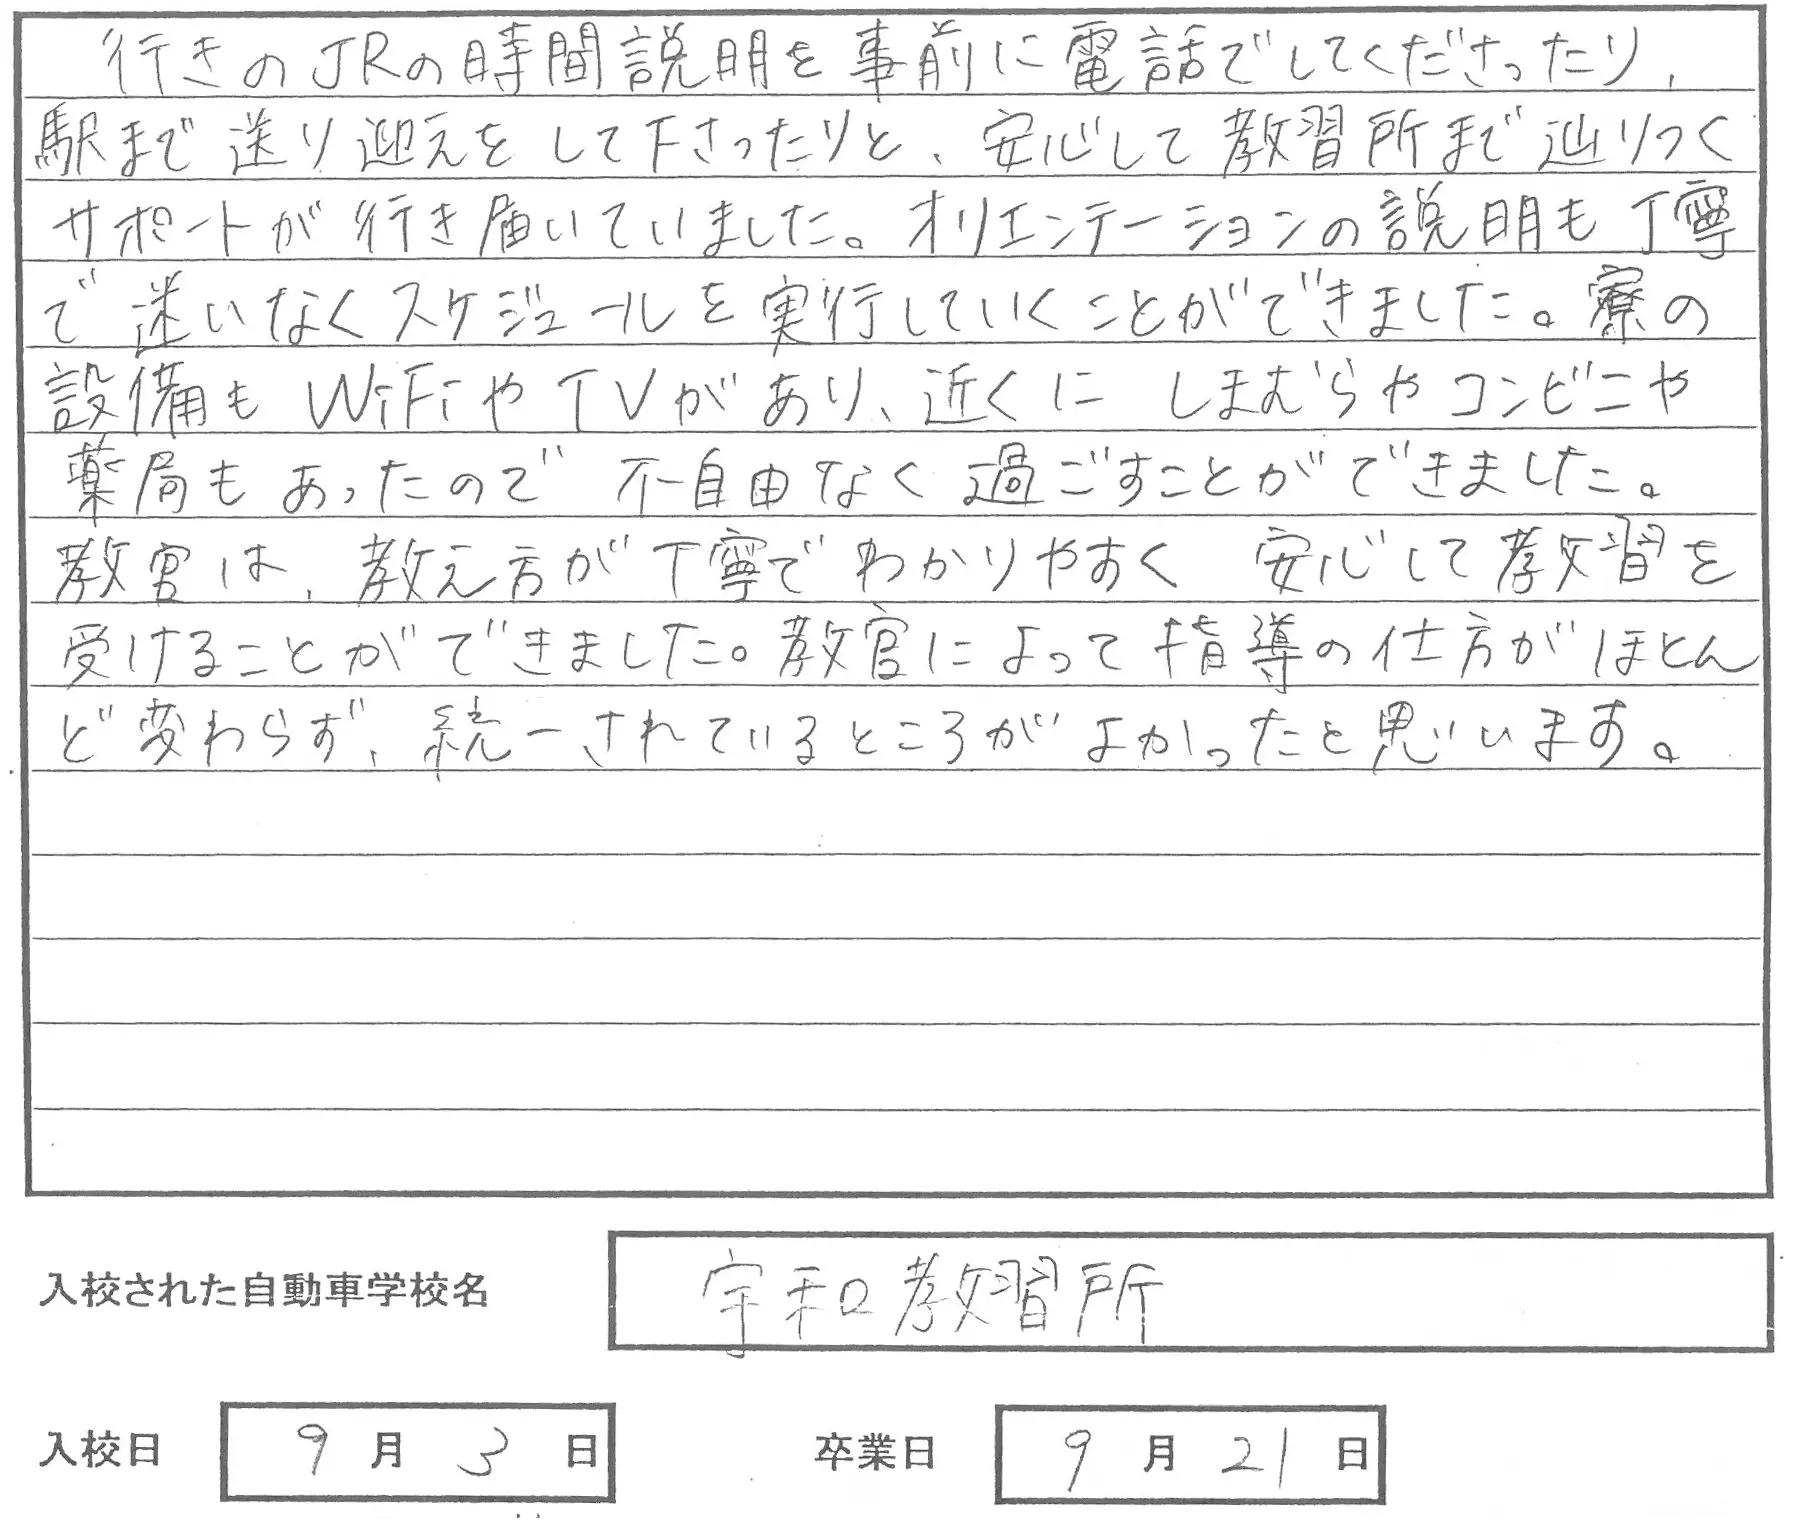 行きのJRの時間説明を事前に電話でしてくださったり、
駅まで送り迎えをして下さったりと、安心して教習所まで辿りつく
サポートが行き届いていました。オリエンテーションの説明も丁寧
で迷いなくスケジュールを実行していくことができました。寮の
設備もWiFiやTVがあり、近くにしまむらやコンビニや
薬局もあったので不自由なく過ごすことができました。
教官は、教え方が丁寧でわかりやすく 安心して教習を
受けることができました。教官によって指導の仕方がほとん
ど変わらず、統一されているところがよかったと思います。
入校された自動車学校名 宇和教習所
入校日 9月3日 卒業日 9月21日